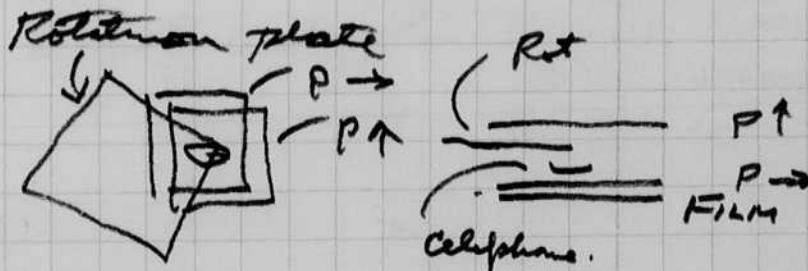 Rotation plate
P →
P ↑
Rot
P ↑
P →
FILM
Cellophane.